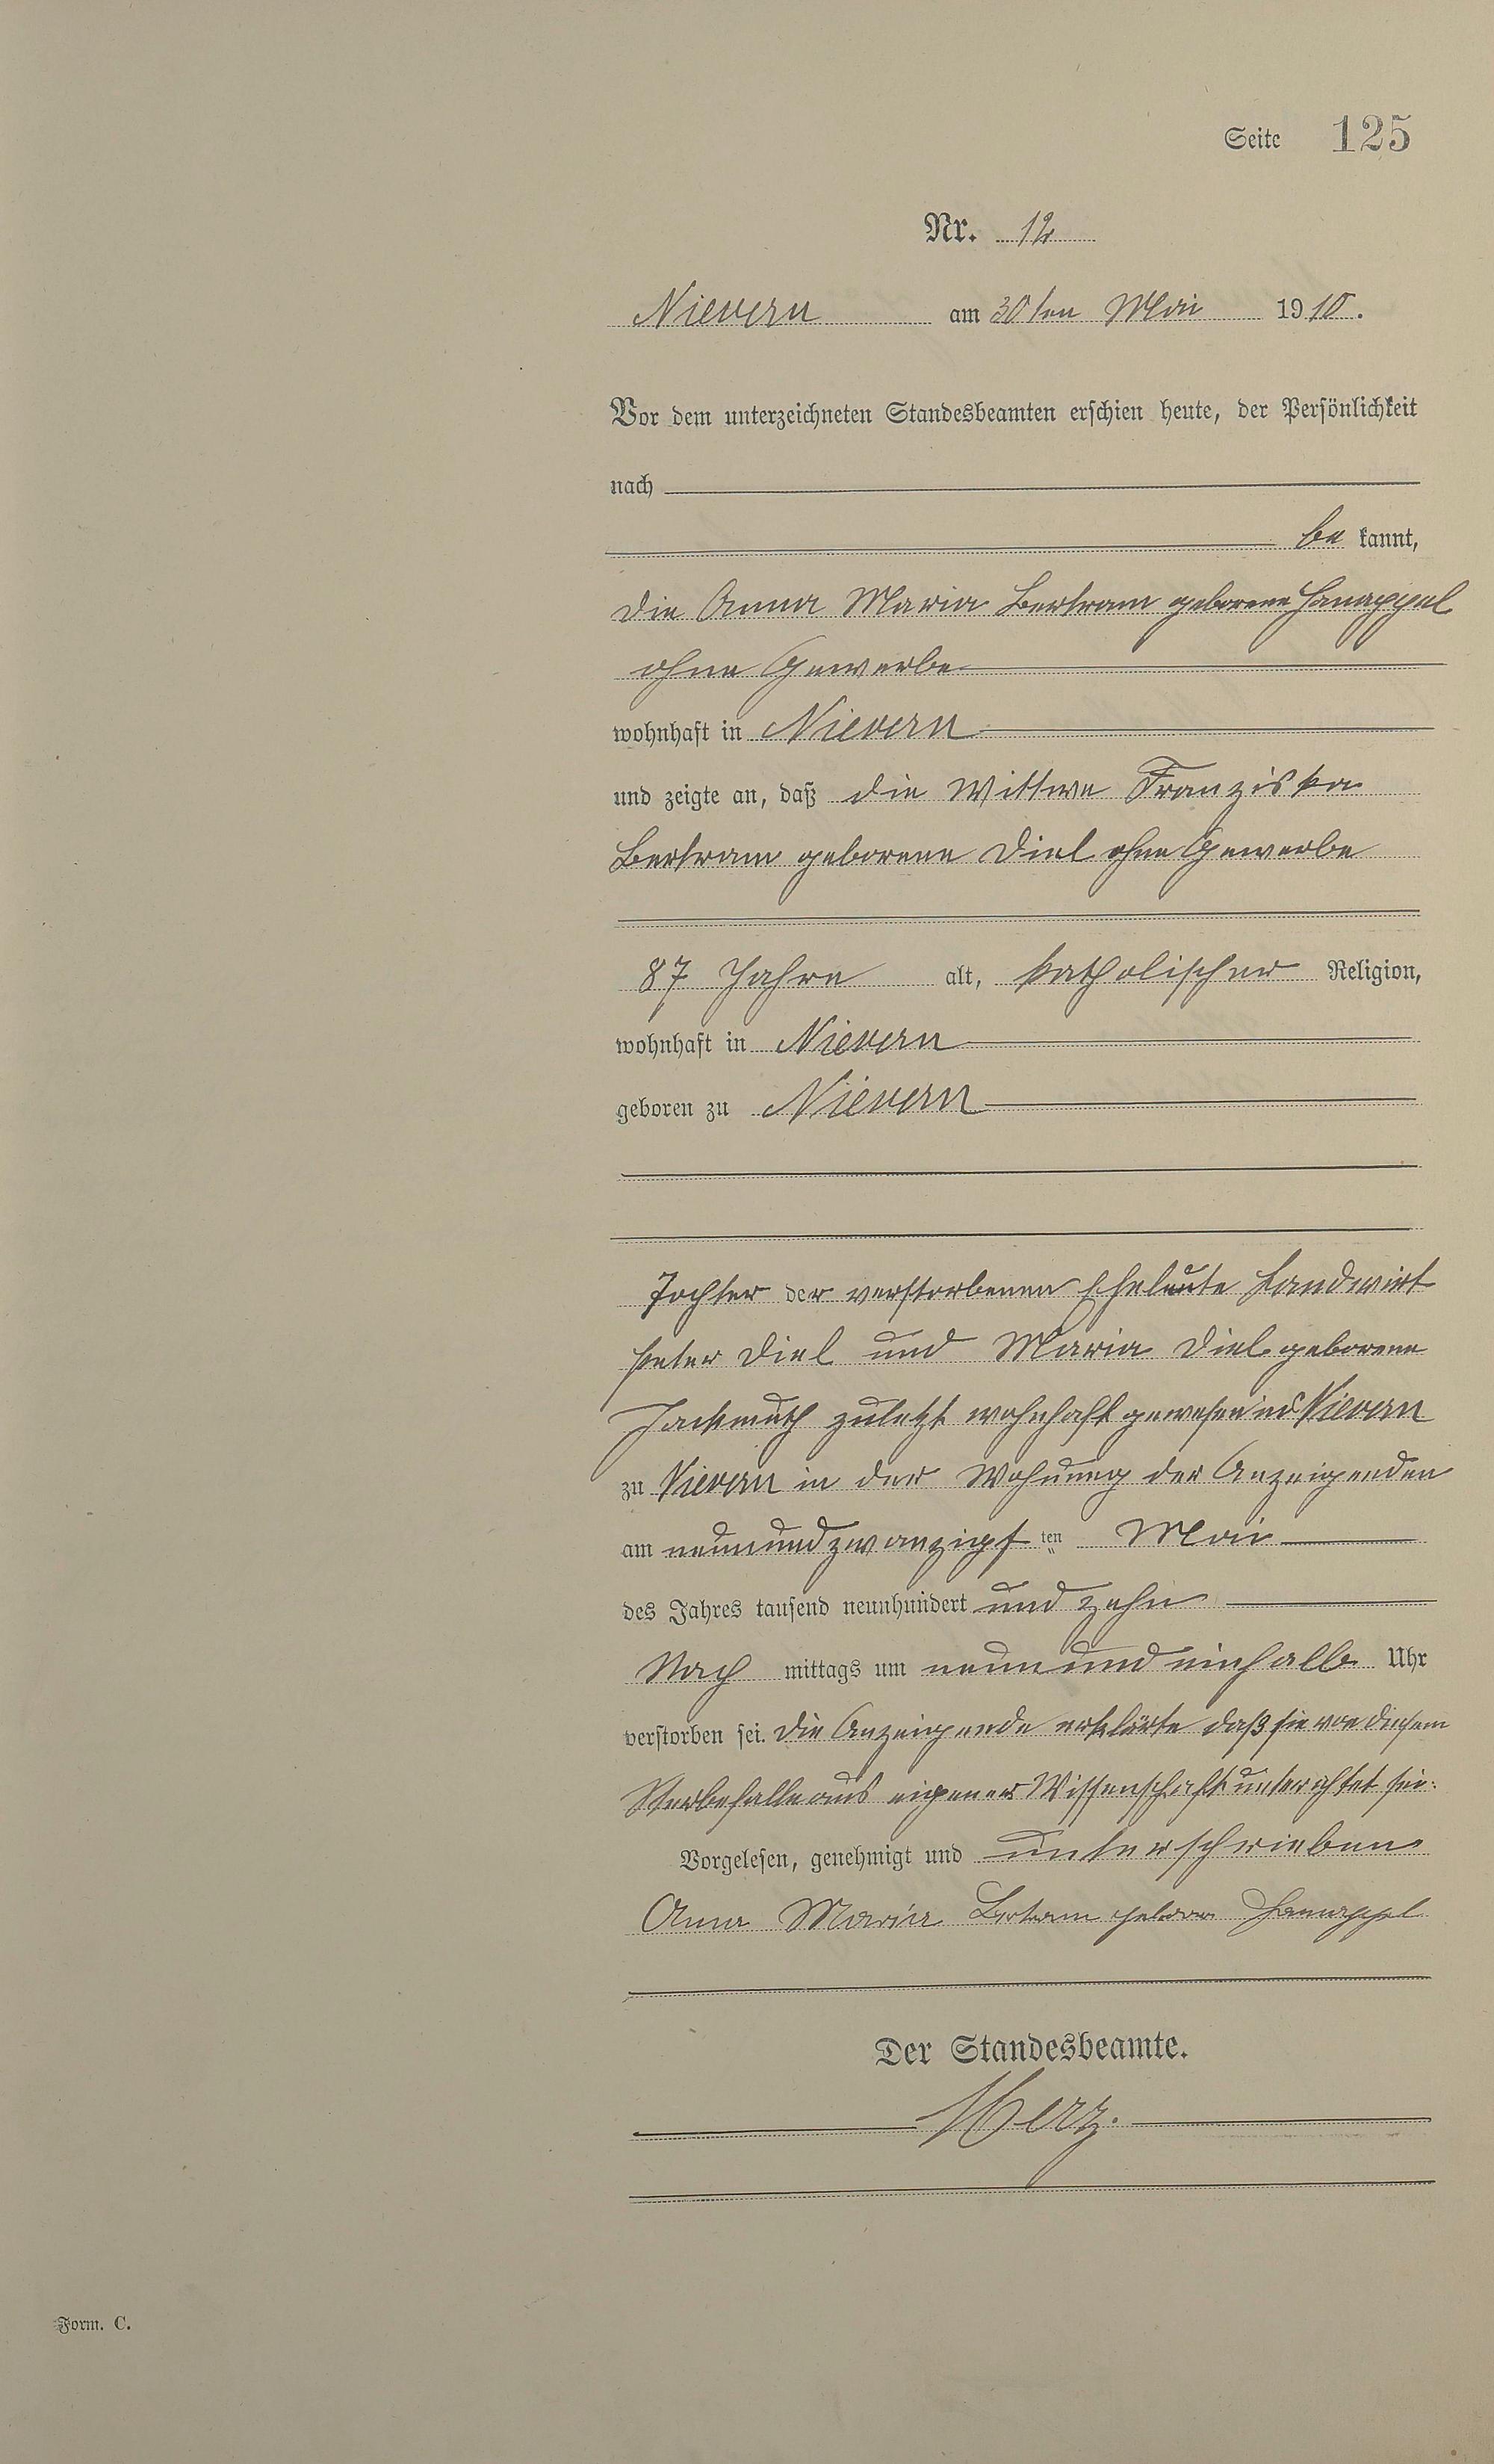 Seite 125
Nr. 12
Nievern am 30ten Mai 1910.
Vor dem unterzeichneten Standesbeamten erschien heute, der Persönlichkeit
nach
be kannt,
die Anna Maria Bertram geborene Hanappel
ohne Gewerbe
wohnhaft in Nievern
und zeigte an, daß die Wittwe Franziska
Bertram geborene Diel ohne Gewerbe
87 Jahre alt, katholischer Religion,
wohnhaft in Nievern
geboren zu Nievern
Tochter der verstorbenen Eheleute Landwirt
Peter Diel und Maria Diel geborene
Hackmuth zuletzt wohnhaft gewesen in Nievern
zu Nievern in der Wohnung der Anzeigenden
am neunundzwanzigsten Mai
des Jahres tausend neunhundert und zehn
Nach mittags um neun und einhalb Uhr
verstorben sei. Die Anzeigende erklärte daß sie von diesem
Sterbefalle aus eigener Wissenschaft unterrichtet sei.
Vorgelesen, genehmigt und unterschrieben
Anna Maria Bertram geborene Hanappel
Der Standesbeamte.
Herz.
Form. C.